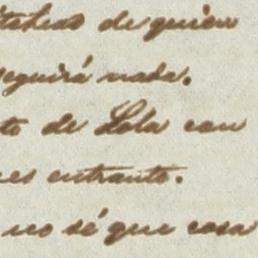 de quien
seguirá nada.
to de Lola con
mes entrante.
no sé que cosa